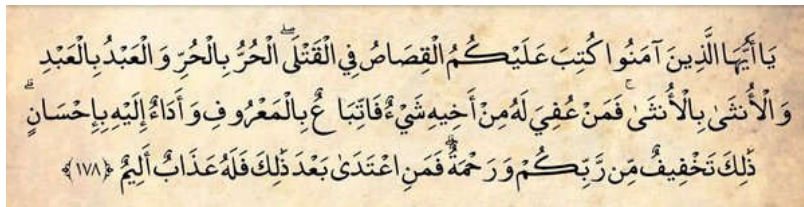 يَا أَيُّهَا الَّذِينَ آمَنُوا كُتِبَ عَلَيْكُمُ الْقِصَاصُ فِي الْقَتْلَى ۖ الْحُرُّ بِالْحُرِّ وَالْعَبْدُ بِالْعَبْدِ
وَالْأُنثَىٰ بِالْأُنثَىٰ ۚ فَمَنْ عُفِيَ لَهُ مِنْ أَخِيهِ شَيْءٌ فَاتِّبَاعٌ بِالْمَعْرُوفِ وَأَدَاءٌ إِلَيْهِ بِإِحْسَانٍ ۗ
ذَٰلِكَ تَخْفِيفٌ مِّن رَّبِّكُمْ وَرَحْمَةٌ ۗ فَمَنِ اعْتَدَىٰ بَعْدَ ذَٰلِكَ فَلَهُ عَذَابٌ أَلِيمٌ ﴿١٧٨﴾